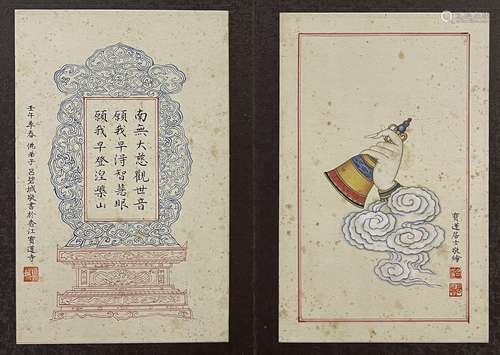 南無大慈觀世音
願我早得智慧眼
願我早登涅槃山
壬午季春 佛弟子 呂碧城敬書於香江寶蓮寺
寶蓮居士敬繪